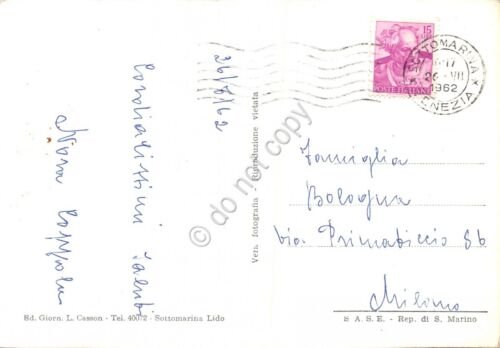 26/7/62
Cordialissimi saluti
Nora
Vera fotografia - Riproduzione vietata
Ed. Giorn. L. Casson - Tel. 40072 - Sottomarina Lido
15
POSTE ITALIANE
SOTTOMARINA
26 VII
1962
VENEZIA
Famiglia
Bologna
via Primaticcio 86
Milano
S A. S E. - Rep. di S. Marino
do not copy